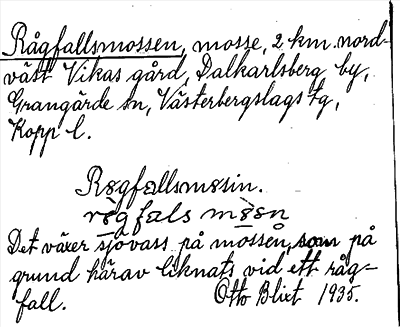 Rågfallsmossen, mosse, 2 km. nord-
väst Vikas gård, Dalkarlsberg by,
Grangärde sn, Västerbergslags tg,
Kopp l.
Rågfallsmosin.
Det växer sjövass på mossen, som på
grund härav liknats vid ett råg-
fall. Otto Blixt 1935.